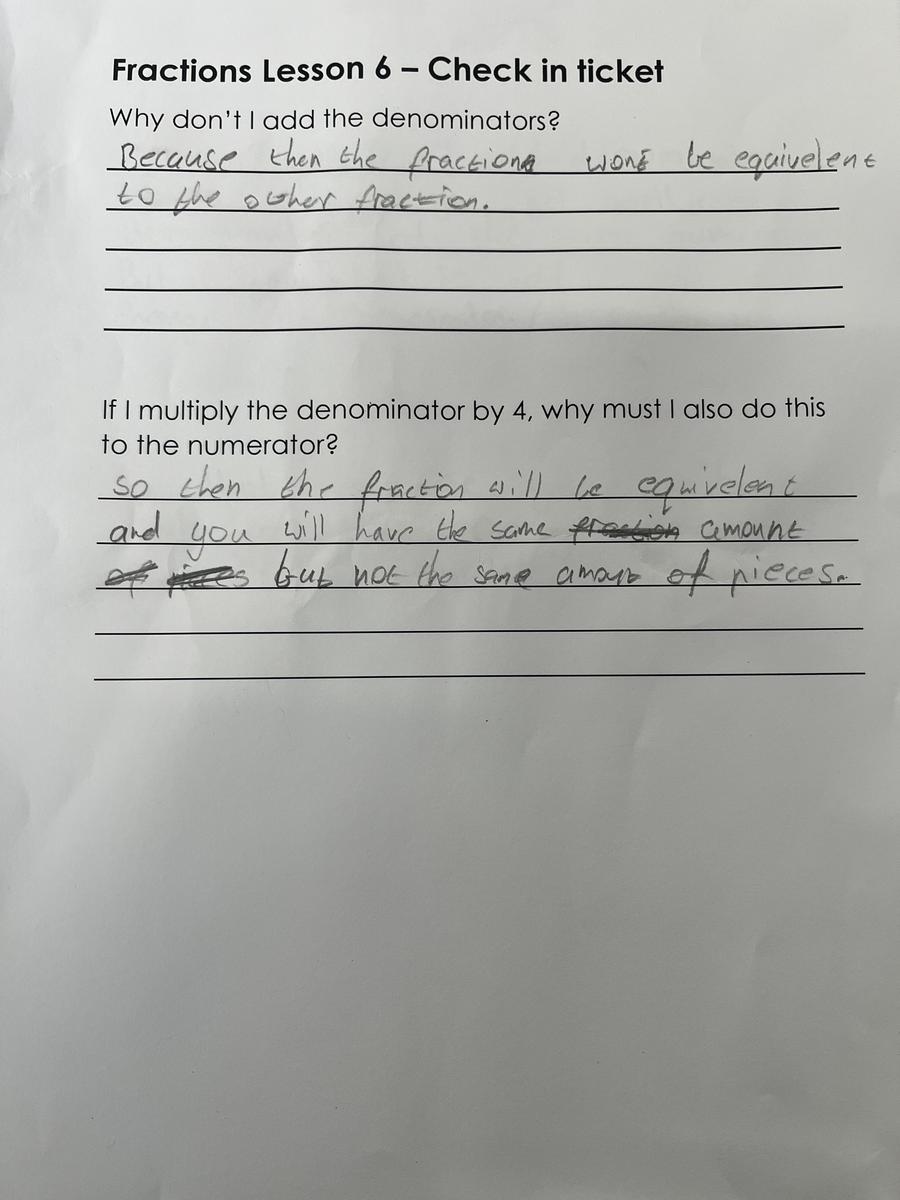 Fractions Lesson 6 – Check in ticket
Why don't I add the denominators?
Because then the fractions wont be equivelent
to the other fraction.
If I multiply the denominator by 4, why must I also do this
to the numerator?
So then the fraction will be equivelent
and you will have the same fraction amount
of pices but not the same amount of pieces.